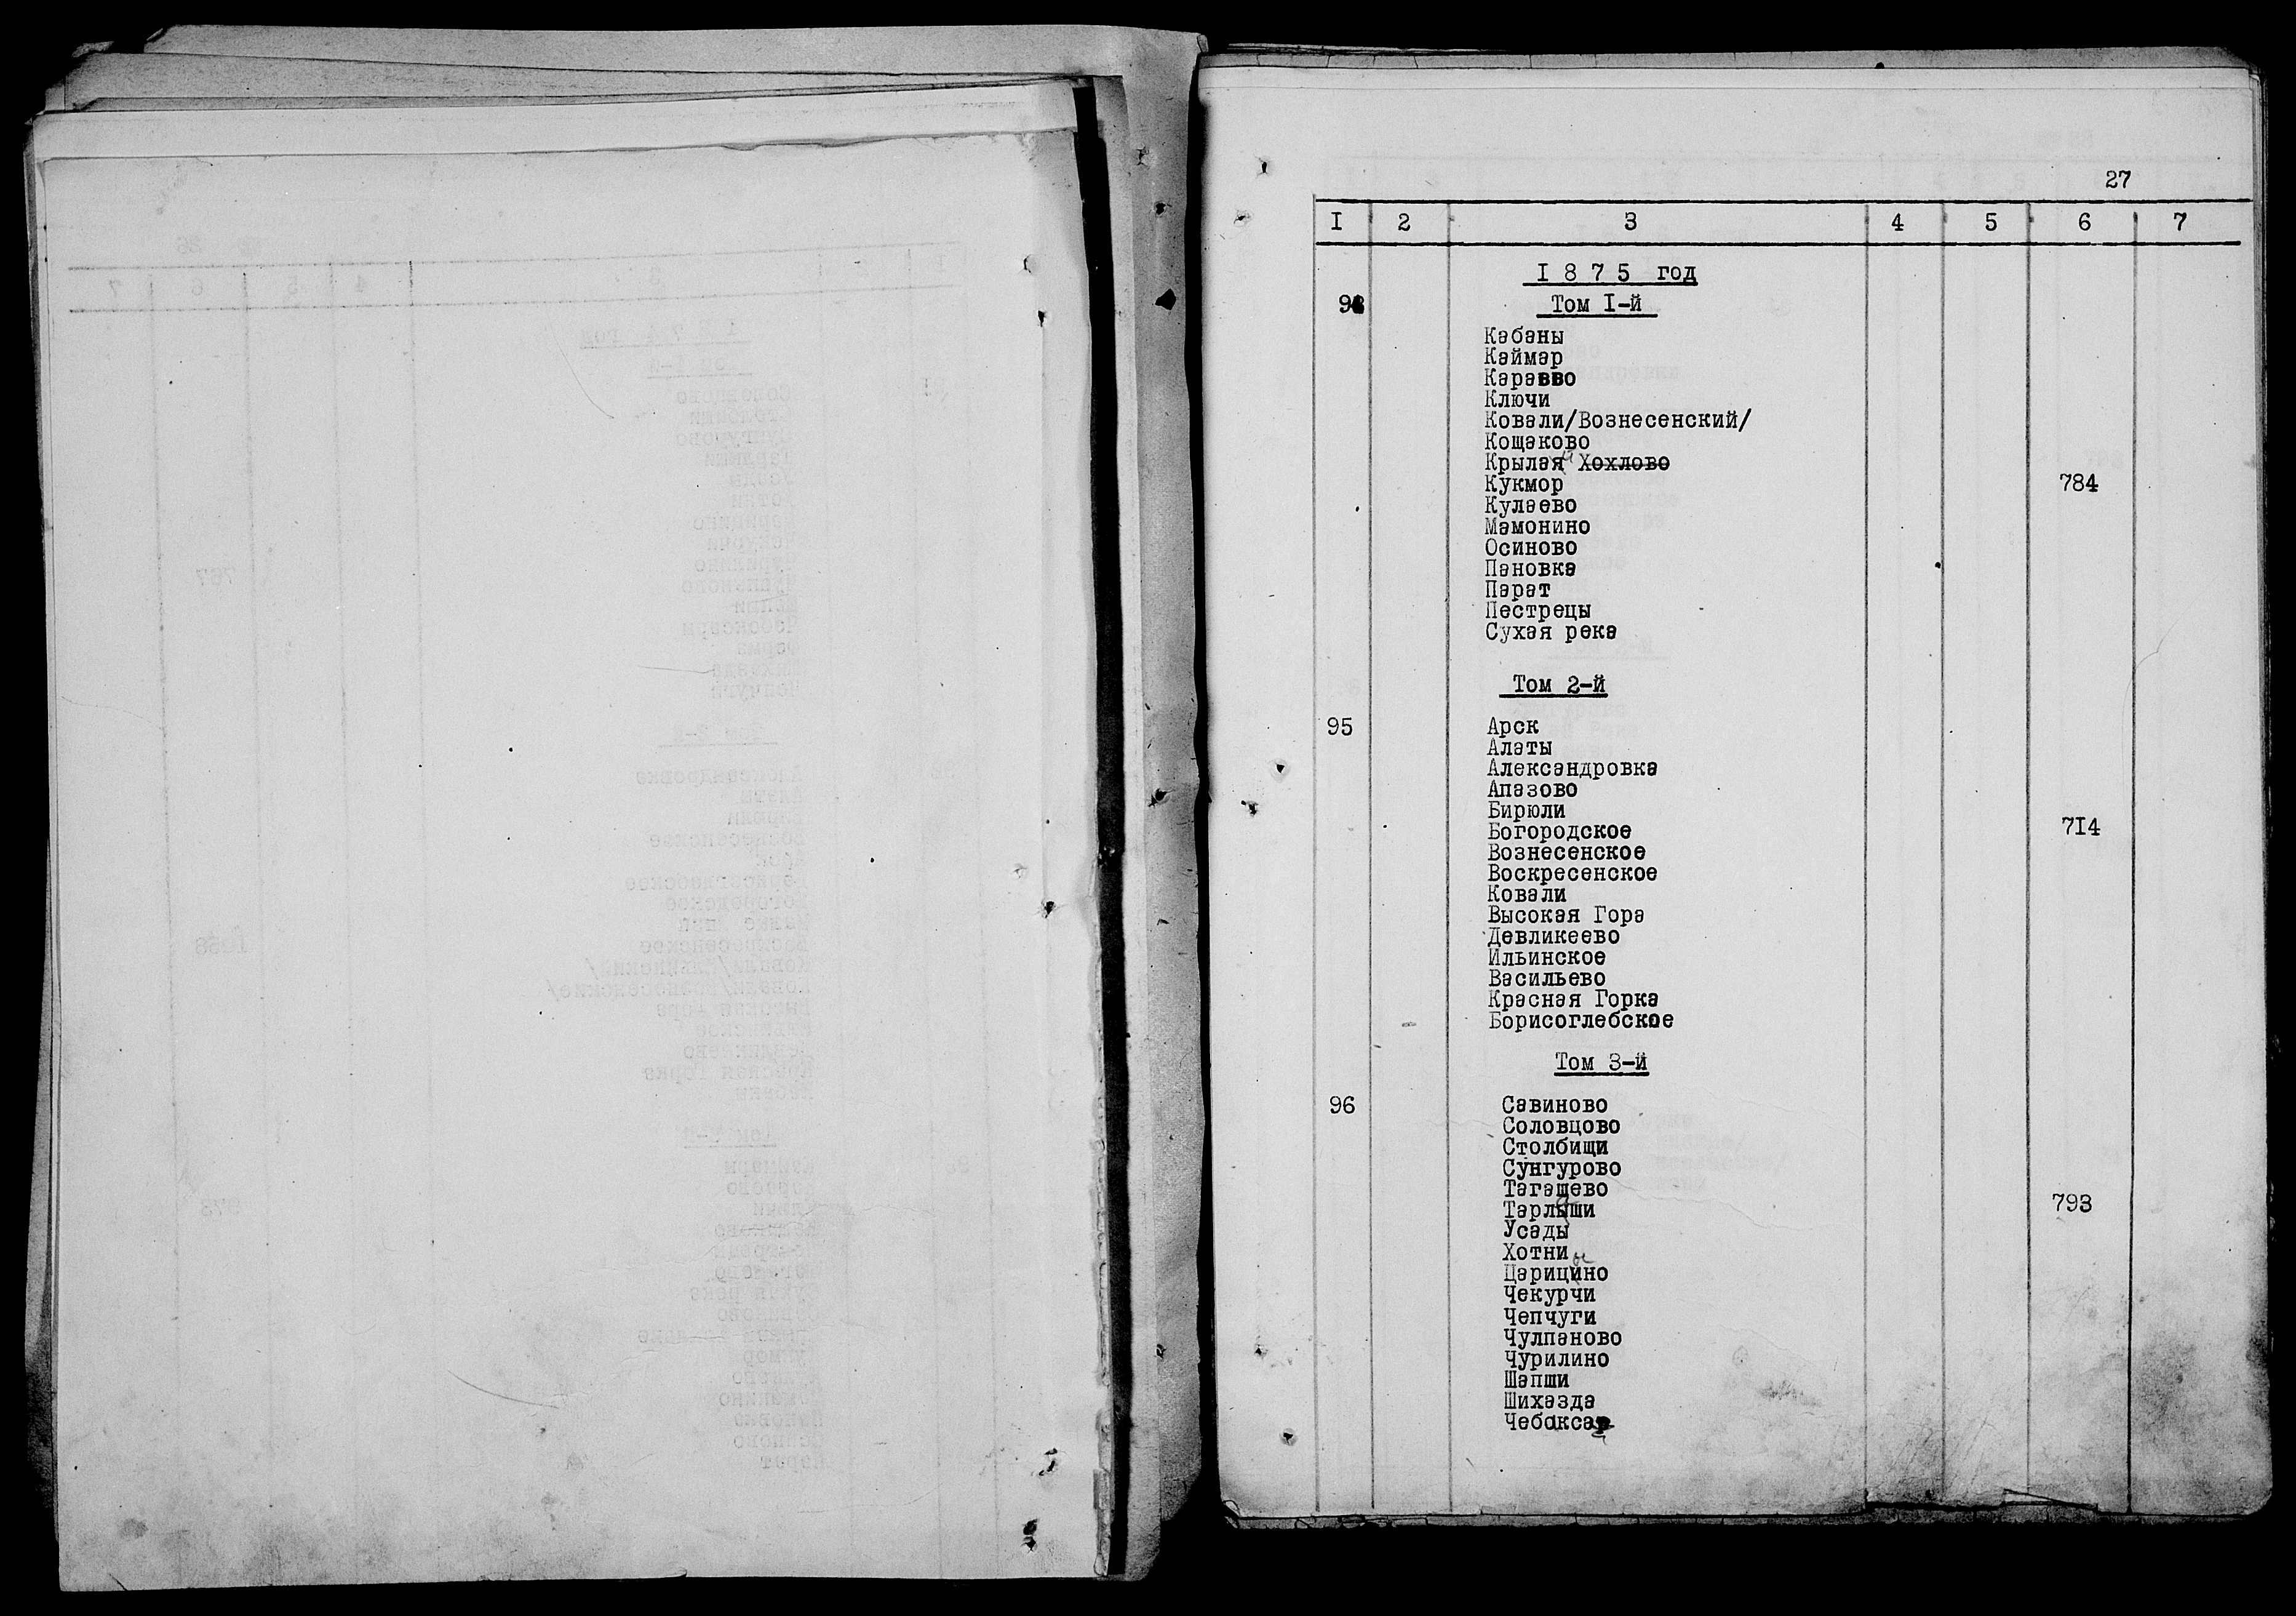 27
I 2 3 4 5 6 7
I 8 7 5 год
Том I-й
Кабаны
Каймар
Караево
Ключи
Ковали/Вознесенский/
Кощаково
Крылая Хохлово
Кукмор 784
Кулаево
Мамонино
Осиново
Пановка
Парат
Пестрецы
Сухая река
Том 2-й
95 Арск
Алаты
Александровка
Апазово
Бирюли
Богородское 7I4
Вознесенское
Воскресенское
Ковали
Высокая Гора
Девликеево
Ильинское
Васильево
Красная Горка
Борисоглебское
Том 3-й
96 Савиново
Соловцово
Столбищи
Сунгурово
Тагашево
Тарлаши 793
Усады
Хотни
Царицыно
Чекурчи
Чепчуги
Чулпаново
Чурилино
Шапши
Шихазда